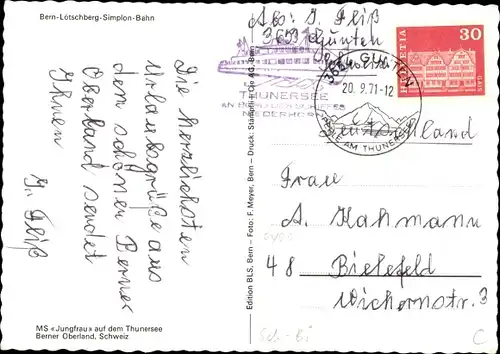 Bern-Lötschberg-Simplon-Bahn
Die herzlichsten
Urlaubsgrüße aus
dem schönen Berner
Oberland sendet
Ihnen
J. Fleiß
MS «Jungfrau» auf dem Thunersee
Berner Oberland, Schweiz
Edition BLS, Bern – Foto: F. Meyer, Bern – Druck: Stämpfli + Cie AG, Bern
Abs: J. Fleiß
Gunten
THUNERSEE
NIEDERHORN
20. 9. 71-12
AM THUNERSEE
HELVETIA
30
Deutschland
Frau
A. Kahmann
48 Bielefeld
Wichernstr. 3
Sch-Bi
C